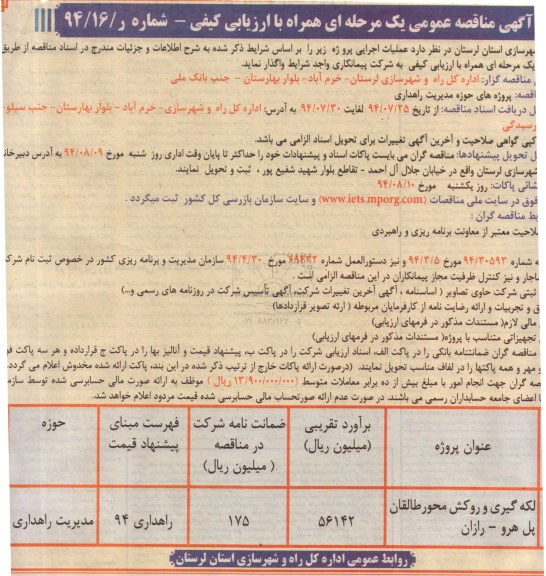 آگهی مناقصه عمومی یک مرحله ای همراه با ارزیابی کیفی - شماره ر/۹۴/۱۶
شهرسازی استان لرستان در نظر دارد عملیات اجرایی پروژه زیر را بر اساس شرایط ذکر شده به شرح اطلاعات و جزئیات مندرج در اسناد مناقصه از طریق
یک مرحله ای همراه با ارزیابی کیفی به شرکت پیمانکاری واجد شرایط واگذار نماید.
مناقصه گزار: اداره کل راه و شهرسازی لرستان- خرم آباد- بلوار بهارستان - جنب بانک ملی
پروژه های حوزه مدیریت راهداری
دریافت اسناد مناقصه: از تاریخ ۹۴/۰۷/۲۵ لغایت ۹۴/۰۷/۳۰ به آدرس: اداره کل راه و شهرسازی- خرم آباد - بلوار بهارستان- جنب سیلو
رسیدگی
کپی گواهی صلاحیت و آخرین آگهی تغییرات برای تحویل اسناد الزامی می باشد.
تحویل پیشنهادها: مناقصه گران می بایست پاکات اسناد و پیشنهادات خود را حداکثر تا پایان وقت اداری روز شنبه مورخ ۹۴/۰۸/۰۹ به آدرس دبیرخانه
شهرسازی لرستان واقع در خیابان جلال آل احمد - تقاطع بلوار شهید شفیع پور ، ثبت و تحویل نمایند.
پاکات: روز یکشنبه مورخ ۹۴/۰۸/۱۰
فوق در سایت ملی مناقصات (www.iets.mporg.com) و سایت سازمان بازرسی کل کشور ثبت میگردد .
مناقصه گران :
معتبر از معاونت برنامه ریزی و راهبردی
شماره ۹۴/۳۰۵۹۳ مورخ ۹۴/۳/۵ و نیز دستورالعمل شماره ۶۹۴۳۲ مورخ ۹۴/۴/۳۰ سازمان مدیریت و برنامه ریزی کشور در خصوص ثبت نام شرکت
و نیز کنترل ظرفیت مجاز پیمانکاران در این مناقصه الزامی است .
ثبتی شرکت حاوی تصاویر ( اساسنامه ، آگهی آخرین تغییرات شرکت، آگهی تأسیس شرکت در روزنامه های رسمی و...)
و تجربیات و ارائه رضایت نامه از کارفرمایان مربوطه ( ارئه تصویر قراردادها)
مالی لازم( مستندات مذکور در فرمهای ارزیابی)
تجهیزاتی متناسب با پروژه( مستندات مذکور در فرمهای ارزیابی)
مناقصه گران ضمانتنامه بانکی را در پاکت الف، اسناد ارزیابی شرکت را در پاکت ب، پیشنهاد قیمت و آنالیز بها را در پاکت ج قرارداده و هر سه پاکت
و مهر و همه پاکتها را در لفاف مناسب تحویل نمایند. (درصورت ارائه پاکات خارج از ترتیب ذکر شده در این بند، پاکت ارائه شده مخدوش اعلام می گردد.
گران جهت انجام امور با مبلغ بیش از ده برابر معاملات متوسط (۱۳/۹۰۰/۰۰۰/۰۰۰ ریال ) موظف به ارائه صورت مالی حسابرسی شده توسط
اعضای جامعه حسابداران رسمی می باشند. در صورت عدم ارائه صورتحساب مالی حسابرسی شده قیمت مردود اعلام خواهد شد.
عنوان پروژه | برآورد تقریبی (میلیون ریال) | ضمانت نامه شرکت در مناقصه ( میلیون ریال) | فهرست مبنای پیشنهاد قیمت | حوزه
لکه گیری و روکش محورطالقان پل هرو - رازان | ۵۶۱۴۲ | ۱۷۵ | راهداری ۹۴ | مدیریت راهداری
روابط عمومی اداره کل راه و شهرسازی استان لرستان